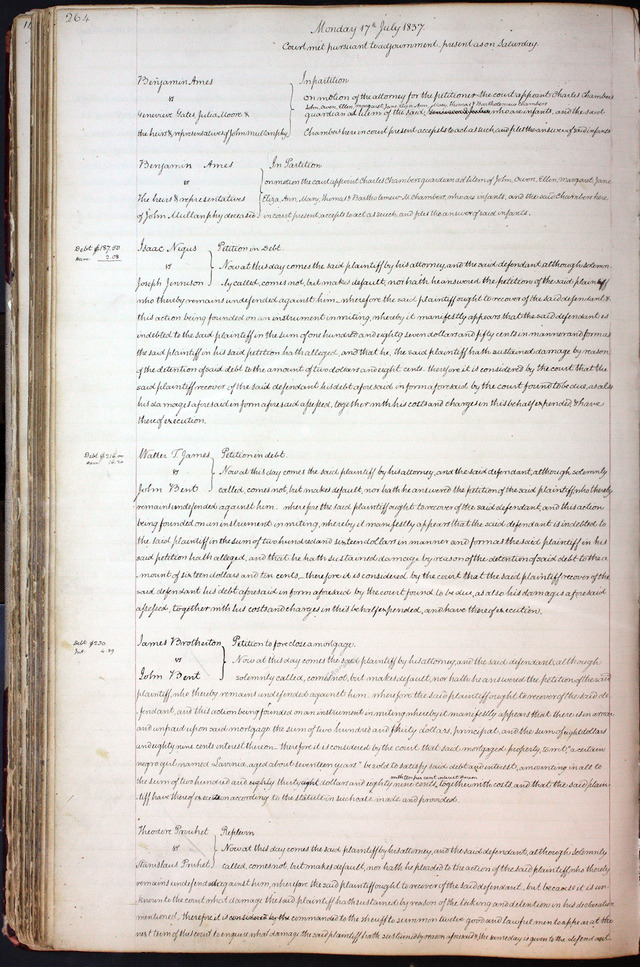 264
Monday 17th July 1837.
Court met pursuant to adjournment, present as on Saturday.
Benjamin Ames
vs
Genevieve Gates, Julia, Moore &
the heirs & representatives of John Mullanphy
In partition
on motion of the attorney for the petitioner the court appoint Charles Chambers
John, Owen, Ellen, Margaret, Jane Eliza Ann, Mary, Thomas & Bartholomew Chambers
guardian ad litem of the said who are infants, and the said
Chambers here in court present accepts to act as such, and files the answer of said infants
Benjamin Ames
vs
The heirs & representatives
of John Mullanphy deceased
In Partition
on motion the court appoint Charles Chambers guardian ad litem of John, Owen, Ellen, Margaret, Jane
Eliza, Ann, Mary, Thomas & Bartholomew M. Chambers, who are infants, and the said Chambers here
in court present accepts to act as such, and files the answer of said infants.
Debt $187.50
2.08
Isaac Negus
vs
Joseph Jennison
Petition in Debt.
Now at this day comes the said plaintiff by his attorney, and the said defendant although solemn-
ly called, comes not, but makes default, nor hath he answered the petition of the said plaintiff
who thereby remains undefended against him, wherefore the said plaintiff ought to recover of the said defendant &
this action being founded on an instrument in writing, whereby it manifestly appears that the said defendant is
indebted to the said plaintiff in the sum of one hundred and eighty seven dollars and fifty cents in manner and form as
the said plaintiff in his said petition hath alleged, and that he, the said plaintiff hath sustained damage by reason
of the detention of said debt to the amount of two dollars and eight cents. therefore it is considered by the court that the
said plaintiff recover of the said defendant his debt aforesaid in form aforesaid by the court found to be due, as also
his damages aforesaid in form aforesaid assessed, together with his costs and charges in this behalf expended & have
thereof execution.
Debt $216.00
16.10
Walter T. James
vs
John Bent
Petition in debt.
Now at this day comes the said plaintiff by his attorney, and the said defendant, although solemnly
called, comes not, but makes default, nor hath he answered the petition of the said plaintiff, who thereby
remains undefended against him. wherefore the said plaintiff ought to recover of the said defendant, and this action
being founded on an instrument in writing, whereby it manifestly appears that the said defendant is indebted to
the said plaintiff in the sum of two hundred and sixteen dollars in manner and form as the said plaintiff in his
said petition hath alleged, and that he hath sustained damage by reason of the detention of said debt to the a-
mount of sixteen dollars and ten cents, therefore it is considered by the court that the said plaintiff recover of the
said defendant his debt aforesaid in form aforesaid by the court found to be due, as also his damages aforesaid
assessed, together with his costs and charges in this behalf expended, and have thereof execution.
Debt $230
Int. 8.89
James Brotherton
vs
John Bent
Petition to foreclose a mortgage.
Now at this day comes the said plaintiff by his attorney, and the said defendant, although
solemnly called, comes not, but makes default, nor hath he answered the petition of the said
plaintiff, who thereby remains undefended against him. wherefore the said plaintiff ought to recover of the said de-
fendant, and this action being founded on an instrument in writing whereby it manifestly appears that there is in arrear
and unpaid upon said mortgage the sum of two hundred and thirty dollars, principal, and the sum of eight dollars
and eighty nine cents interest thereon. therefore it is considered by the court that said mortgaged property, to wit, "a certain
negro girl named Lavinia, aged about seventeen years" be sold to satisfy said debt and interest, amounting in all to
with ten per cent interest thereon
the sum of two hundred and eighty thirty eight dollars and eighty nine cents, together with costs, and that the said plain-
tiff have thereof execution according to the statute in such case made and provided.
Theodore Pruhet
vs
Stanislaus Pruhet
Replevin
Now at this day comes the said plaintiff by his attorney, and the said defendant, although solemnly
called, comes not, but makes default, nor hath he pleaded to the action of the said plaintiff, who thereby
remains undefended against him, wherefore the said plaintiff ought to recover of the said defendant, but because it is un-
known to the court what damage the said plaintiff hath sustained by reason of the taking and detention in his declaration
mentioned, therefore it is considered by the commanded to the sheriff to summon twelve good and lawful men to appear at the
next term of this court to enquire what damage the said plaintiff hath sustained by reason aforesaid & the same day is given to the defend-